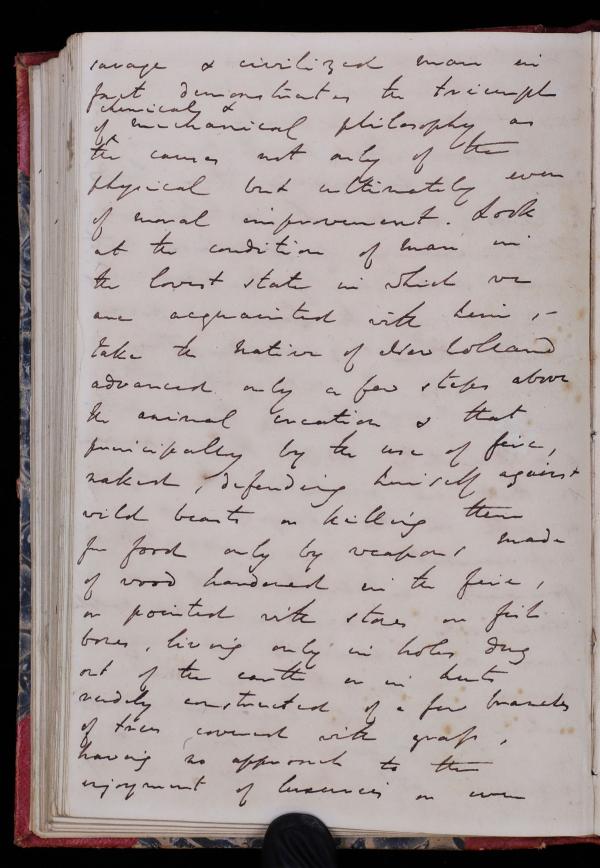 savage & civilized man in
fact demonstrates the triumph
chemical &
of mechanical philosophy as
the cause not only of the
physical but ultimately even
of moral improvement. Look
at the condition of man in
the lowest state in which we
are acquainted with him, –
take the native of New Holland
advanced only a few steps above
the animal creation & that
principally by the use of fire,
naked, defending himself against
wild beasts or killing them
for food only by weapons made
of wood hardened in the fire,
or pointed with stones or fish
bones, living only in holes dug
out of the earth or in huts
rudely constructed of a few branches
of trees covered with grass,
having no approach to the
enjoyment of luxuries or even